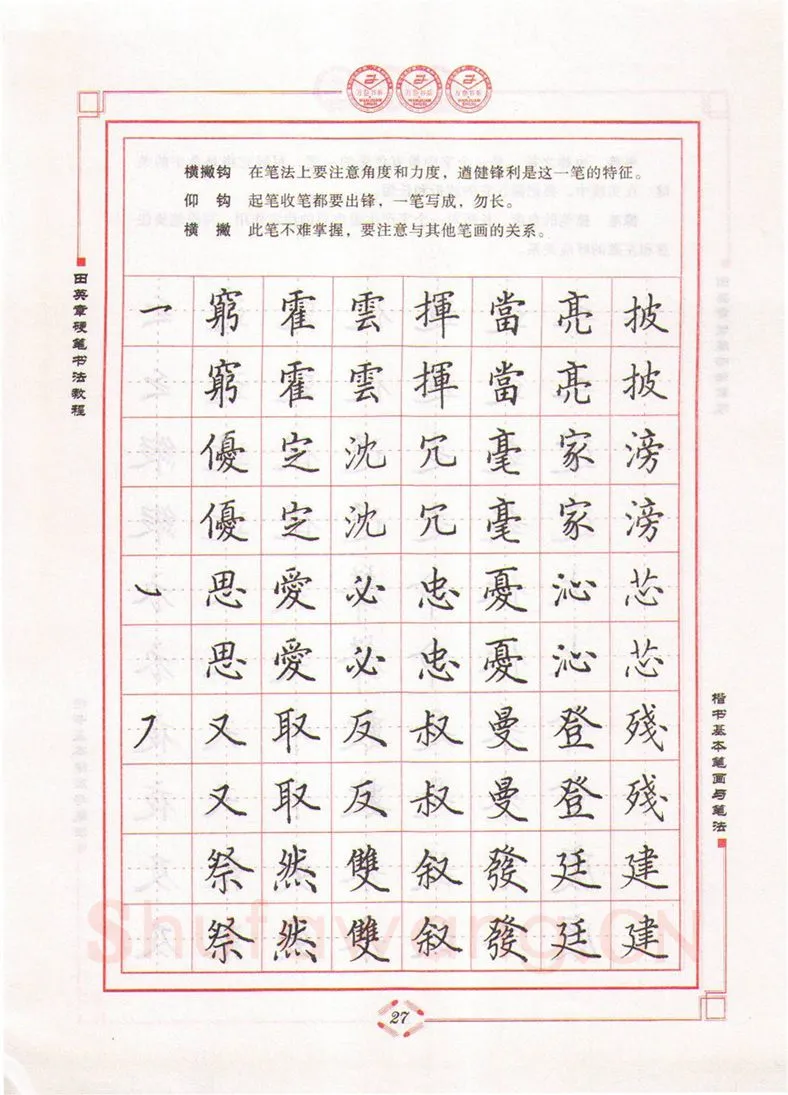 横撇钩 在笔法上要注意角度和力度，遒健锋利是这一笔的特征。
仰钩 起笔收笔都要出锋，一笔写成，勿长。
横撇 此笔不难掌握，要注意与其他笔画的关系。
田英章硬笔书法教程
窮霍雲揮當亮披
窮霍雲揮當亮披
優定沈冗毫家滂
優定沈冗毫家滂
思愛必忠憂沁芯
思愛必忠憂沁芯
又取反叔曼登殘
又取反叔曼登殘
祭然雙叙發廷建
祭然雙叙發廷建
楷书基本笔画与笔法
Shufawang.CN
27